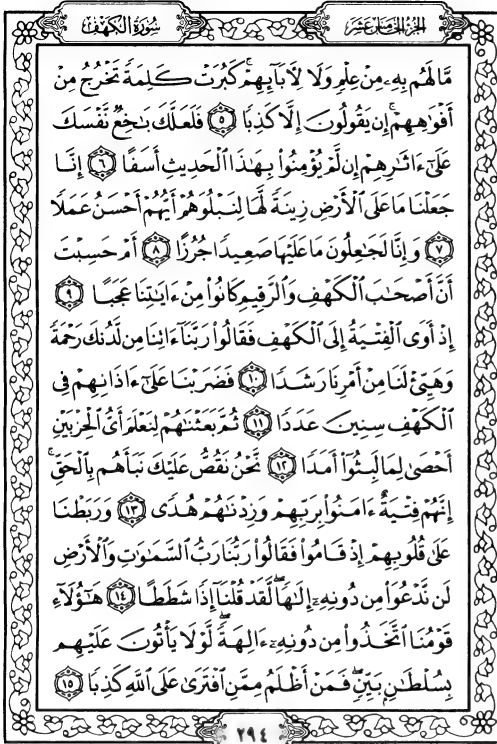 الجزء الخامس عشر
سورة الكهف
مَّا لَهُم بِهِۦ مِنْ عِلْمٍ وَلَا لِأَبَآئِهِمْ ۚ كَبُرَتْ كَلِمَةً تَخْرُجُ مِنْ
أَفْوَٰهِهِمْ ۚ إِن يَقُولُونَ إِلَّا كَذِبًا ۝٥ فَلَعَلَّكَ بَٰخِعٌ نَّفْسَكَ
عَلَىٰٓ ءَاثَٰرِهِمْ إِن لَّمْ يُؤْمِنُوا۟ بِهَٰذَا ٱلْحَدِيثِ أَسَفًا ۝٦ إِنَّا
جَعَلْنَا مَا عَلَى ٱلْأَرْضِ زِينَةً لَّهَا لِنَبْلُوَهُمْ أَيُّهُمْ أَحْسَنُ عَمَلًا
۝٧ وَإِنَّا لَجَٰعِلُونَ مَا عَلَيْهَا صَعِيدًا جُرُزًا ۝٨ أَمْ حَسِبْتَ
أَنَّ أَصْحَٰبَ ٱلْكَهْفِ وَٱلرَّقِيمِ كَانُوا۟ مِنْ ءَايَٰتِنَا عَجَبًا ۝٩
إِذْ أَوَى ٱلْفِتْيَةُ إِلَى ٱلْكَهْفِ فَقَالُوا۟ رَبَّنَآ ءَاتِنَا مِن لَّدُنكَ رَحْمَةً
وَهَيِّئْ لَنَا مِنْ أَمْرِنَا رَشَدًا ۝١٠ فَضَرَبْنَا عَلَىٰٓ ءَاذَانِهِمْ فِى
ٱلْكَهْفِ سِنِينَ عَدَدًا ۝١١ ثُمَّ بَعَثْنَٰهُمْ لِنَعْلَمَ أَىُّ ٱلْحِزْبَيْنِ
أَحْصَىٰ لِمَا لَبِثُوٓا۟ أَمَدًا ۝١٢ نَّحْنُ نَقُصُّ عَلَيْكَ نَبَأَهُم بِٱلْحَقِّ ۚ
إِنَّهُمْ فِتْيَةٌ ءَامَنُوا۟ بِرَبِّهِمْ وَزِدْنَٰهُمْ هُدًى ۝١٣ وَرَبَطْنَا
عَلَىٰ قُلُوبِهِمْ إِذْ قَامُوا۟ فَقَالُوا۟ رَبُّنَا رَبُّ ٱلسَّمَٰوَٰتِ وَٱلْأَرْضِ
لَن نَّدْعُوَا۟ مِن دُونِهِۦٓ إِلَٰهًا ۖ لَّقَدْ قُلْنَآ إِذًا شَطَطًا ۝١٤ هَٰٓؤُلَآءِ
قَوْمُنَا ٱتَّخَذُوا۟ مِن دُونِهِۦٓ ءَالِهَةً ۖ لَّوْلَا يَأْتُونَ عَلَيْهِم
بِسُلْطَٰنٍۭ بَيِّنٍ ۖ فَمَنْ أَظْلَمُ مِمَّنِ ٱفْتَرَىٰ عَلَى ٱللَّهِ كَذِبًا ۝١٥
٢٩٤